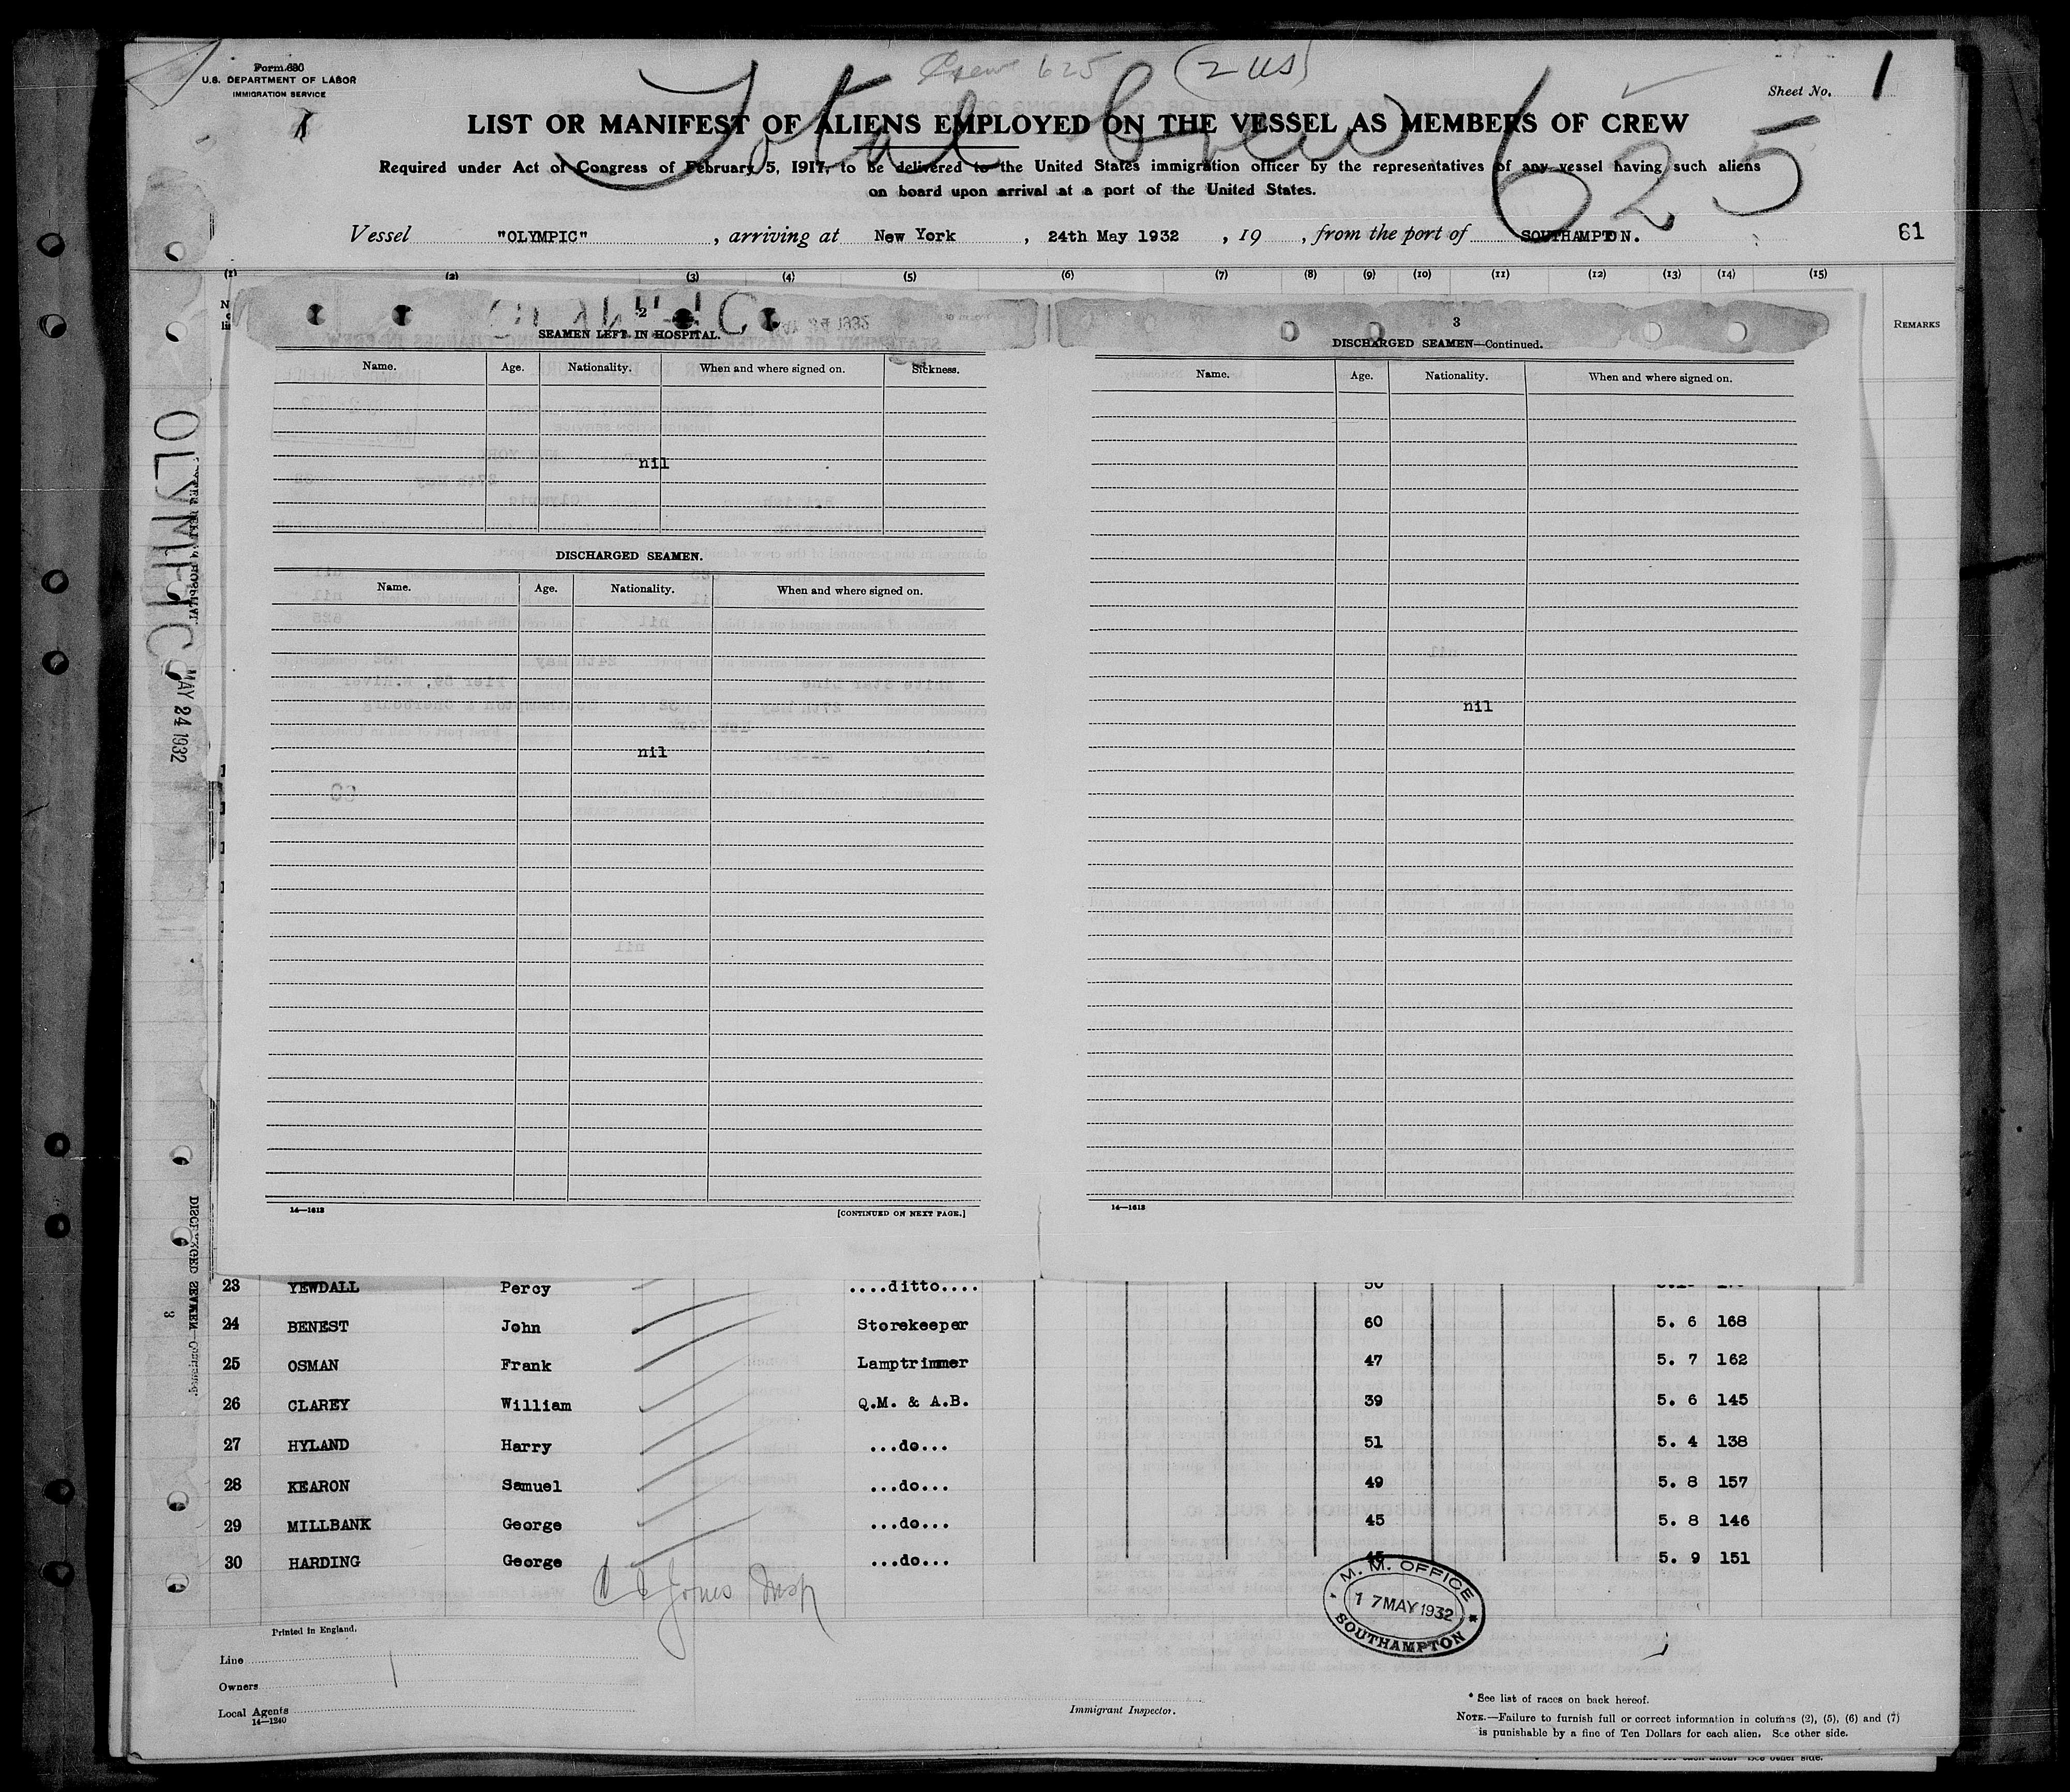 Form 680
U.S. DEPARTMENT OF LABOR
IMMIGRATION SERVICE
Crew 625 (2 US)
Total Crew 625
Sheet No. 1
LIST OR MANIFEST OF ALIENS EMPLOYED ON THE VESSEL AS MEMBERS OF CREW
Required under Act of Congress of February 5, 1917, to be delivered to the United States immigration officer by the representatives of any vessel having such aliens
on board upon arrival at a port of the United States.
Vessel "OLYMPIC", arriving at New York, 24th May 1932, 19 , from the port of SOUTHAMPTON.
61
(1) (2) (3) (4) (5) (6) (7) (8) (9) (10) (11) (12) (13) (14) (15)
REMARKS
2
SEAMEN LEFT IN HOSPITAL.
Name. Age. Nationality. When and where signed on. Sickness.
nil
DISCHARGED SEAMEN.
Name. Age. Nationality. When and where signed on.
nil
14—1613
[CONTINUED ON NEXT PAGE.]
3
DISCHARGED SEAMEN—Continued.
Name. Age. Nationality. When and where signed on.
nil
14—1613
OLYMPIC
MAY 24 1932
DISCHARGED SEAMEN—Continued.
3
23 YEWDALL Percy ....ditto....
24 BENEST John Storekeeper 60 5. 6 168
25 OSMAN Frank Lamptrimmer 47 5. 7 162
26 CLAREY William Q.M. & A.B. 39 5. 6 145
27 HYLAND Harry ...do... 51 5. 4 138
28 KEARON Samuel ...do... 49 5. 8 157
29 MILLBANK George ...do... 45 5. 8 146
30 HARDING George ...do... 45 5. 9 151
Jones Insp
M. M. OFFICE
17 MAY 1932
SOUTHAMPTON
Printed in England.
Line
Owners
Local Agents
14—1240
Immigrant Inspector.
* See list of races on back hereof.
NOTE.—Failure to furnish full or correct information in columns (2), (5), (6) and (7)
is punishable by a fine of Ten Dollars for each alien. See other side.